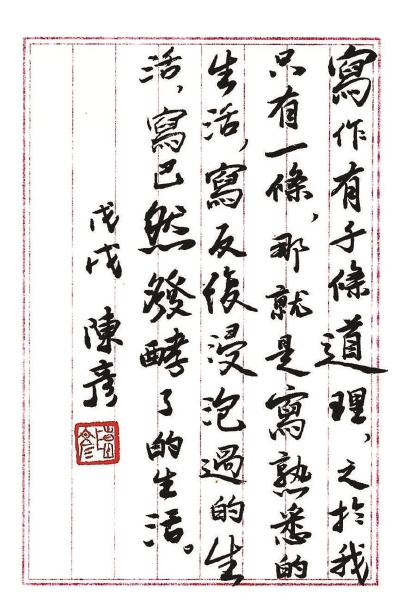 寫作有千條道理，之於我
只有一條，那就是寫熟悉的
生活，寫反復浸泡過的生
活，寫已然發酵了的生活。
戊戌 陳彥
陳彥